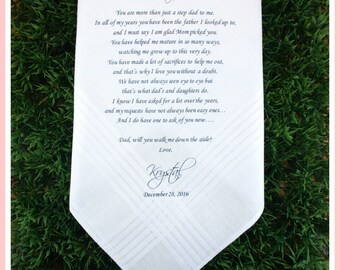 You are more than just a step dad to me.
In all of my years you have been the father I looked up to,
and I must say I am glad Mom picked you.
You have helped me mature in so many ways,
watching me grow up to this very day.
You have made a lot of sacrifices to help me out,
and that's why I love you without a doubt.
We have not always seen eye to eye but
that's what dad's and daughters do.
I know I have asked for a lot over the years,
and my requests have not always been easy ones....
And I do have one to ask of you now.....
Dad, will you walk me down the aisle?
Love,
Krystal
December 28, 2016